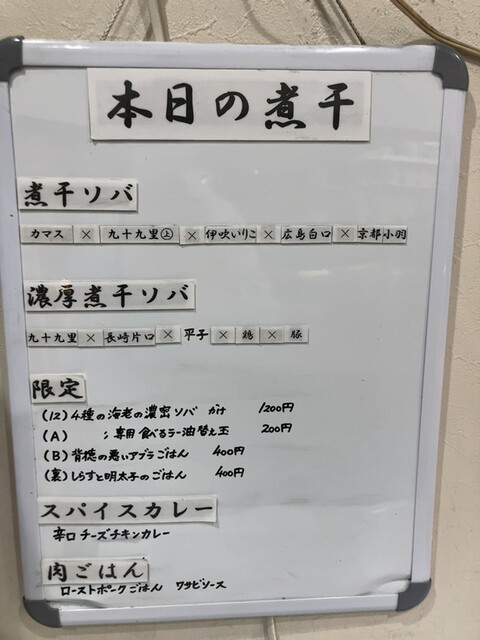 本日の煮干
煮干ソバ
カマス × 九十九里㊤ × 伊吹いりこ × 広島白口 × 京都小羽
濃厚煮干ソバ
九十九里 × 長崎片口 × 平子 × 鶏 × 豚
限定
(12) 4種の海老の濃密ソバ かけ 1200円
(A) : 専用 食べるラー油替え玉 200円
(B) 背徳の悪いアブラごはん 400円
(裏) しらすと明太子のごはん 400円
スパイスカレー
辛口チーズチキンカレー
肉ごはん
ローストポークごはん ワサビソース